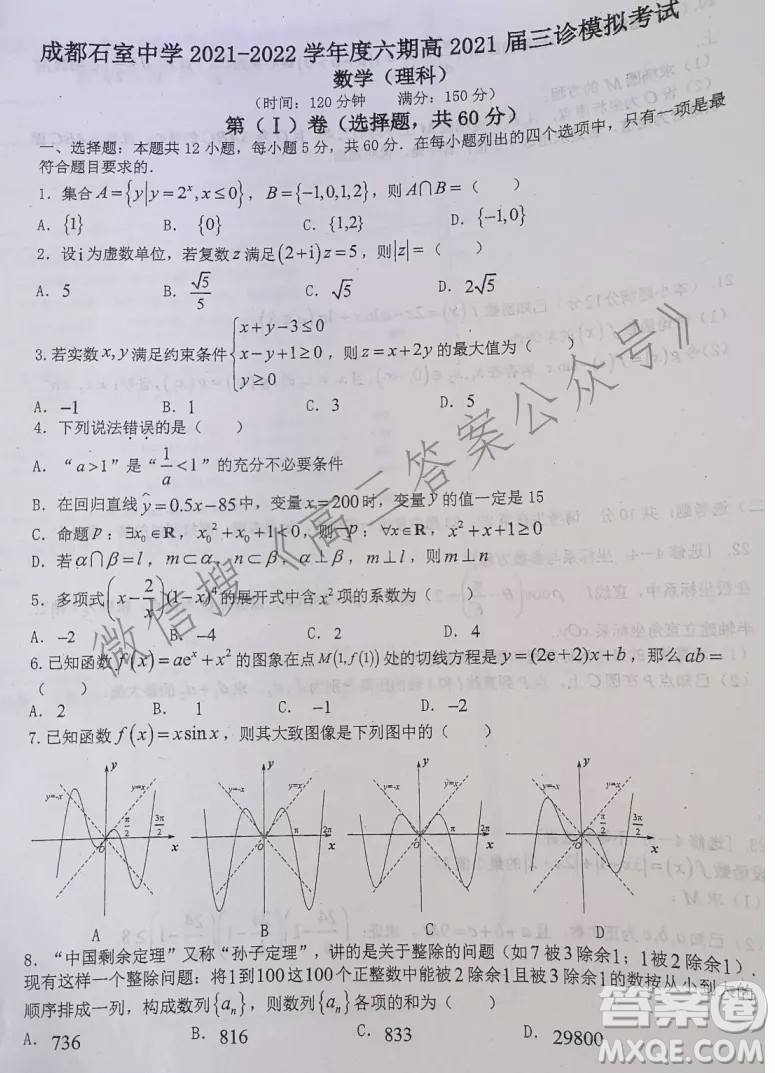 成都石室中学2021-2022学年度六期高2021届三诊模拟考试
数学（理科）
（时间：120分钟 满分：150分）
第（Ⅰ）卷（选择题，共60分）
一、选择题：本题共12小题，每小题5分，共60分．在每小题列出的四个选项中，只有一项是最
符合题目要求的．
1．集合A={y|y=2^x,x≤0}，B={-1,0,1,2}，则A∩B=（ ）
A．{1} B．{0} C．{1,2} D．{-1,0}
2．设i为虚数单位，若复数z满足(2+i)z=5，则|z|=（ ）
A．5 B．√5/5 C．√5 D．2√5
3.若实数x,y满足约束条件{x+y-3≤0 x-y+1≥0 y≥0，则z=x+2y的最大值为（ ）
A．-1 B．1 C．3 D．5
4．下列说法错误的是（ ）
A．“a>1”是“1/a<1”的充分不必要条件
B．在回归直线ŷ=0.5x-85中，变量x=200时，变量y的值一定是15
C．命题p：∃x₀∈R，x₀²+x₀+1<0，则¬p：∀x∈R，x²+x+1≥0
D．若α∩β=l，m⊂α，n⊂β，α⊥β，m⊥l，则m⊥n
5．多项式(x-2/x)(1-x)⁴的展开式中含x²项的系数为（ ）
A．-2 B．-4 C．2 D．4
6.已知函数f(x)=ae^x+x²的图象在点M(1,f(1))处的切线方程是y=(2e+2)x+b，那么ab=
（ ）
A．2 B．1 C．-1 D．-2
7.已知函数f(x)=xsinx，则其大致图像是下列图中的（ ）
y y=-x y=x π/2 3π/2 x O
y y=-x y=x π 2π x O
y y=-x y=x π 2π x O
y y=-x y=x π/2 3π/2 x O
A B C D
8．“中国剩余定理”又称“孙子定理”，讲的是关于整除的问题（如7被3除余1；1被2除余1）．
现有这样一个整除问题：将1到100这100个正整数中能被2除余1且被3除余1的数按从小到大的
顺序排成一列，构成数列{aₙ}，则数列{aₙ}各项的和为（ ）
A．736 B．816 C．833 D．29800
微信搜《高三答案公众号》
答案圈
MXQE.COM